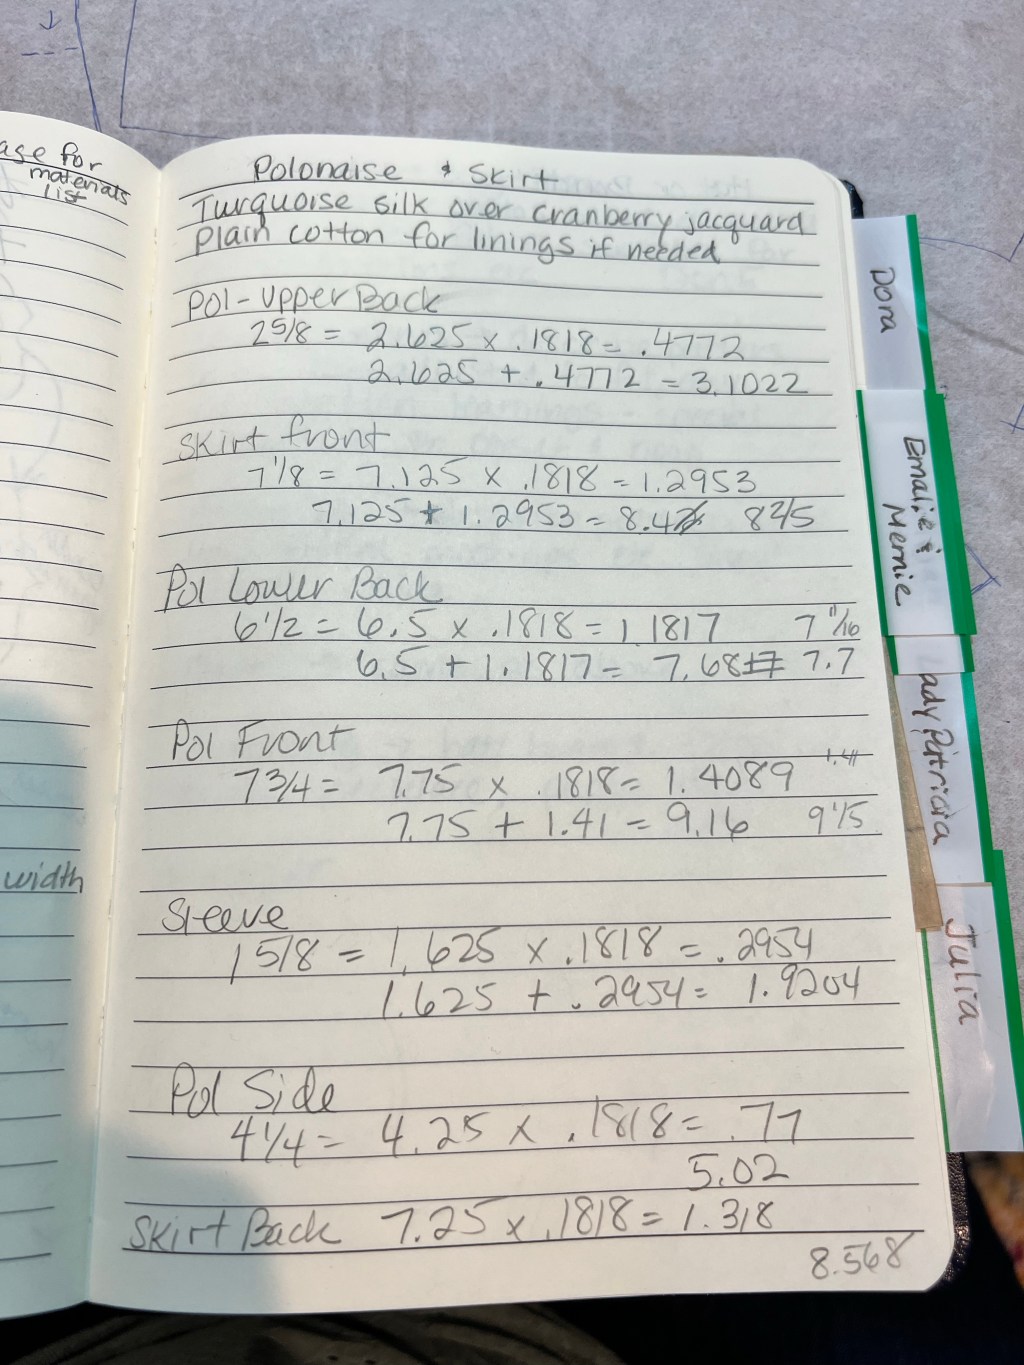 age for
materials
list
width
Polonaise & Skirt
Turquoise silk over cranberry jacquard
Plain cotton for linings if needed
Pol - Upper Back
2 5/8 = 2.625 x .1818 = .4772
2.625 + .4772 = 3.1022
Skirt front
7 1/8 = 7.125 x .1818 = 1.2953
7.125 + 1.2953 = 8.42 8 2/5
Pol Lower Back
6 1/2 = 6.5 x .1818 = 1.1817 7 11/16
6.5 + 1.1817 = 7.6817 7.7
Pol Front
7 3/4 = 7.75 x .1818 = 1.4089 1.41
7.75 + 1.41 = 9.16 9 1/5
Sleeve
1 5/8 = 1.625 x .1818 = .2954
1.625 + .2954 = 1.9204
Pol Side
4 1/4 = 4.25 x .1818 = .77
5.02
Skirt Back 7.25 x .1818 = 1.318
8.568
Dora
Emalie &
Mernie
Lady Patricia
Julia